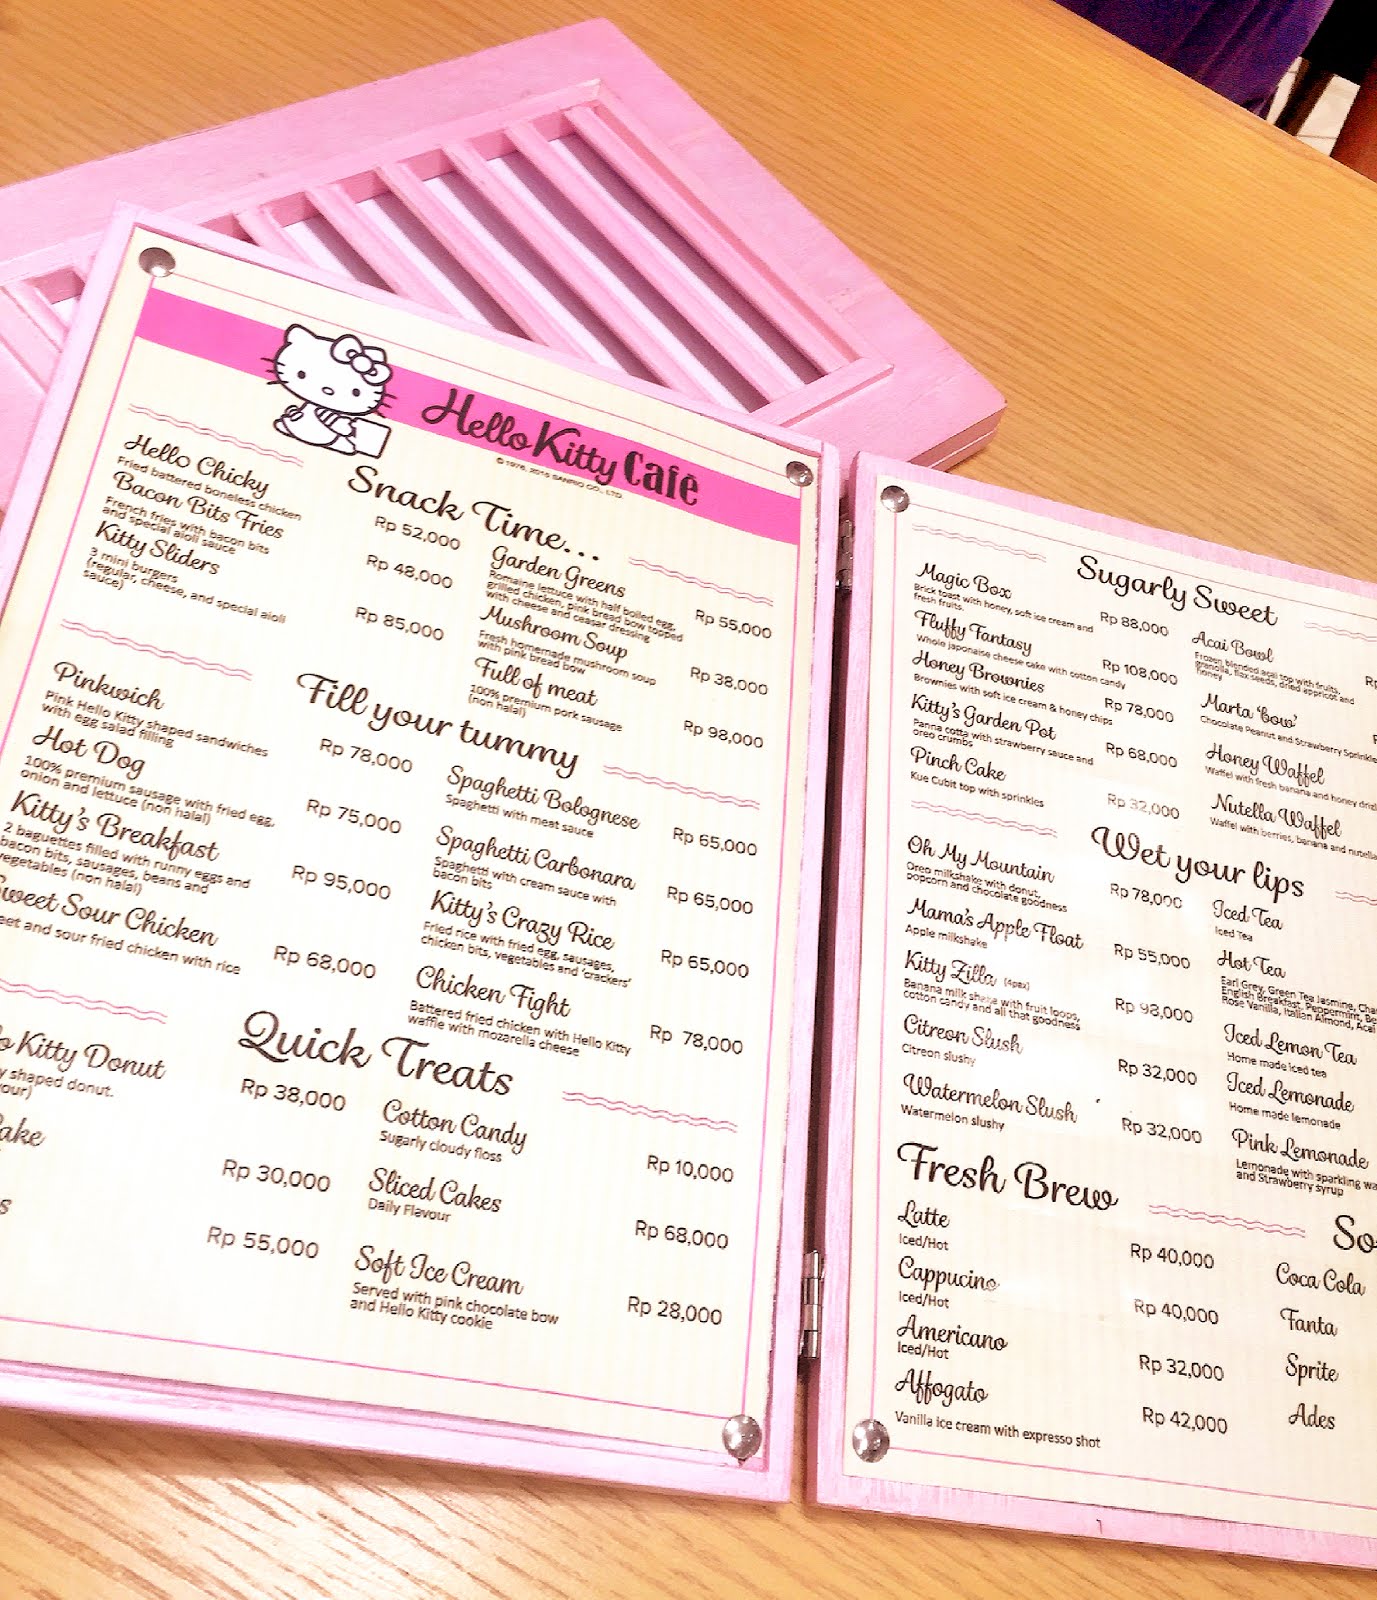 Hello Kitty Cafe
© 1976, 2015 SANRIO CO., LTD.
Snack Time...
Hello Chicky
Fried battered boneless chicken
Rp 52,000
Bacon Bits Fries
French fries with bacon bits
and special aioli sauce
Rp 48,000
Kitty Sliders
3 mini burgers
(regular, cheese, and special aioli
sauce)
Rp 85,000
Garden Greens
Romaine lettuce with half boiled egg,
grilled chicken, pink bread bow topped
with cheese and ceasar dressing
Rp 55,000
Mushroom Soup
Fresh homemade mushroom soup
with pink bread bow
Rp 38,000
Full of meat
100% premium pork sausage
(non halal)
Rp 98,000
Fill your tummy
Pinkwich
Pink Hello Kitty shaped sandwiches
with egg salad filling
Rp 78,000
Hot Dog
100% premium sausage with fried egg,
onion and lettuce (non halal)
Rp 75,000
Kitty's Breakfast
2 baguettes filled with runny eggs and
bacon bits, sausages, beans and
vegetables (non halal)
Rp 95,000
Sweet Sour Chicken
eet and sour fried chicken with rice
Rp 68,000
Spaghetti Bolognese
Spaghetti with meat sauce
Rp 65,000
Spaghetti Carbonara
Spaghetti with cream sauce with
bacon bits
Rp 65,000
Kitty's Crazy Rice
Fried rice with fried egg, sausages,
chicken bits, vegetables and 'crackers'
Rp 65,000
Chicken Fight
Battered fried chicken with Hello Kitty
waffle with mozarella cheese
Rp 78,000
Quick Treats
o Kitty Donut
y shaped donut.
our)
Rp 38,000
ake
Rp 30,000
s
Rp 55,000
Cotton Candy
Sugarly cloudy floss
Rp 10,000
Sliced Cakes
Daily Flavour
Rp 68,000
Soft Ice Cream
Served with pink chocolate bow
and Hello Kitty cookie
Rp 28,000
Sugarly Sweet
Magic Box
Brick toast with honey, soft ice cream and
fresh fruits.
Rp 88,000
Fluffy Fantasy
Whole japonaise cheese cake with cotton candy
Rp 108,000
Honey Brownies
Brownies with soft ice cream & honey chips
Rp 78,000
Kitty's Garden Pot
Panna cotta with strawberry sauce and
oreo crumbs
Rp 68,000
Pinch Cake
Kue Cubit top with sprinkles
Rp 32,000
Acai Bowl
Frozen blended acai top with fruits,
granola, flax seeds, dried appricot and
hnney
Marta 'bow'
Chocolate Peanut and Strawberry Sprinkle
Honey Waffel
Waffel with fresh banana and honey driz
Nutella Waffel
Waffel with berries, banana and nutella
Wet your lips
Oh My Mountain
Oreo milkshake with donut,
popcorn and chocolate goodness
Rp 78,000
Mama's Apple Float
Apple milkshake
Rp 55,000
Kitty Zilla (4pax)
Banana milk shake with fruit loops,
cotton candy and all that goodness
Rp 98,000
Citreon Slush
Citreon slushy
Rp 32,000
Watermelon Slush
Watermelon slushy
Rp 32,000
Iced Tea
Iced Tea
Hot Tea
Earl Grey, Green Tea Jasmine, Cha
English Breakfast, Peppermint, Be
Rose Vanilla, Italian Almond, Acai
Iced Lemon Tea
Home made iced tea
Iced Lemonade
Home made lemonade
Pink Lemonade
Lemonade with sparkling wa
and Strawberry syrup
Fresh Brew
Latte
Iced/Hot
Rp 40,000
Cappucino
Iced/Hot
Rp 40,000
Americano
Iced/Hot
Rp 32,000
Affogato
Vanilla ice cream with expresso shot
Rp 42,000
So
Coca Cola
Fanta
Sprite
Ades